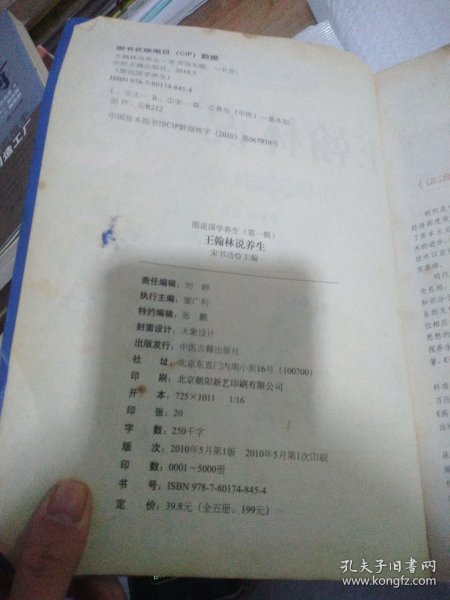 图书在版编目（CIP）数据
王翰林说养生／宋书功主编．—北京：
中医古籍出版社，2010.5
（图说国学养生）
ISBN 978-7-80174-845-4
Ⅰ．①王… Ⅱ．①宋… Ⅲ．①养生（中医）—基本知
识 Ⅳ．①R212
中国版本图书馆CIP数据核字（2010）第067939号
图说国学养生（第一辑）
王翰林说养生
宋书功◎主编
责任编辑：刘 婷
执行主编：窦广利
特约编辑：张 鹏
封面设计：大象设计
出版发行：中医古籍出版社
社 址：北京东直门内南小街16号（100700）
印 刷：北京朝阳新艺印刷有限公司
开 本：725×1011 1/16
印 张：20
字 数：250千字
版 次：2010年5月第1版 2010年5月第1次印刷
印 数：0001－5000册
书 号：ISBN 978-7-80174-845-4
定 价：39.8元（全五册：199元）
《证治
明代是
经济高度发
了资本主义
术的进步，
技术以及
实基础。
为良相，
知识分子
生的文
位相应
思想的
视养生
著，《
科准
万历
《杨
治准
孔夫子旧书网
www.kongfz.com